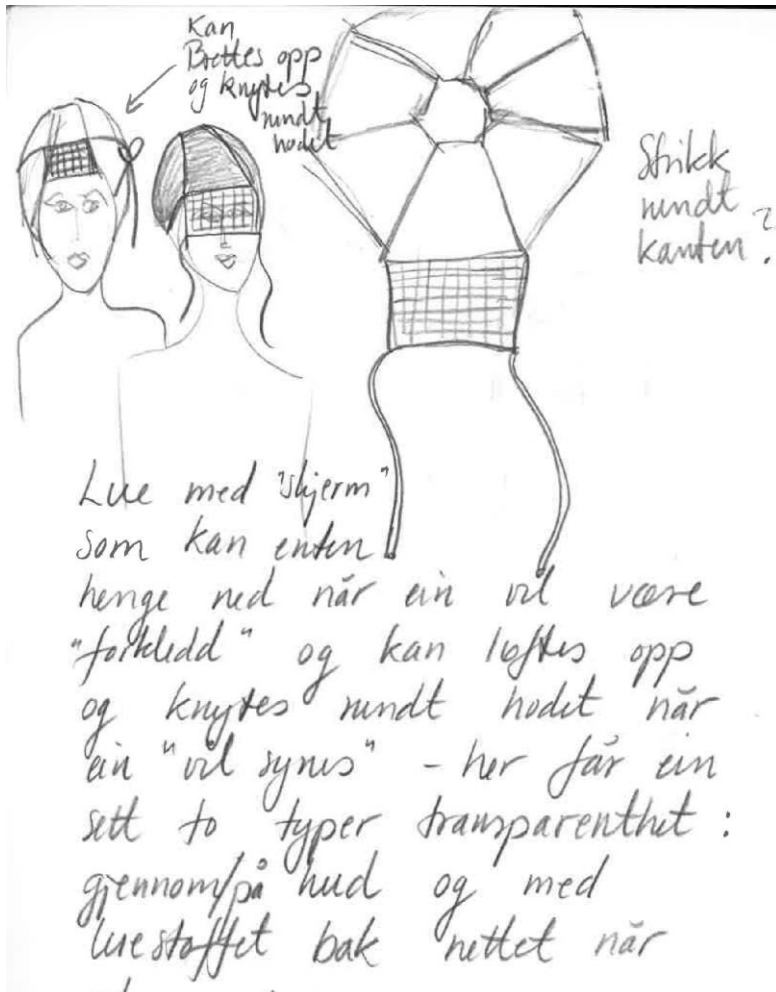 Kan
Brettes opp
og knytes
rundt
hodet
Strikk
rundt
kanten?
Lue med "skjerm"
som kan enten
henge ned når ein vil være
"forkledd" og kan løftes opp
og knytes rundt hodet når
ein "vil synes" - her får ein
sett to typer transparenthet:
gjennom/på hud og med
luestoffet bak nettet når